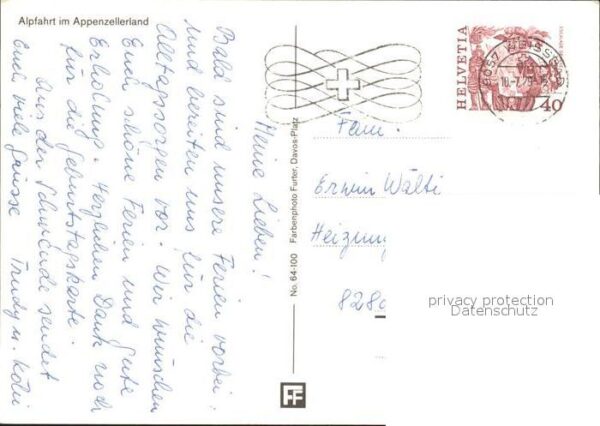 Alpfahrt im Appenzellerland
Meine Lieben!
Bald sind unsere Ferien vorbei
und bereiten uns für die
Alltagssorgen vor. Wir wünschen
Euch schöne Ferien und gute
Erholung. Herzlichen Dank noch
für die Geburtstagskarte.
Aus der sendet
Euch viele Grüsse Trudy u. Köbi
No. 64-100 Farbenphoto Furter, Davos-Platz
FF
HELVETIA
40
18.-7.79-15
Fam.
Erwin Wälti
Heizung
828
privacy protection
Datenschutz